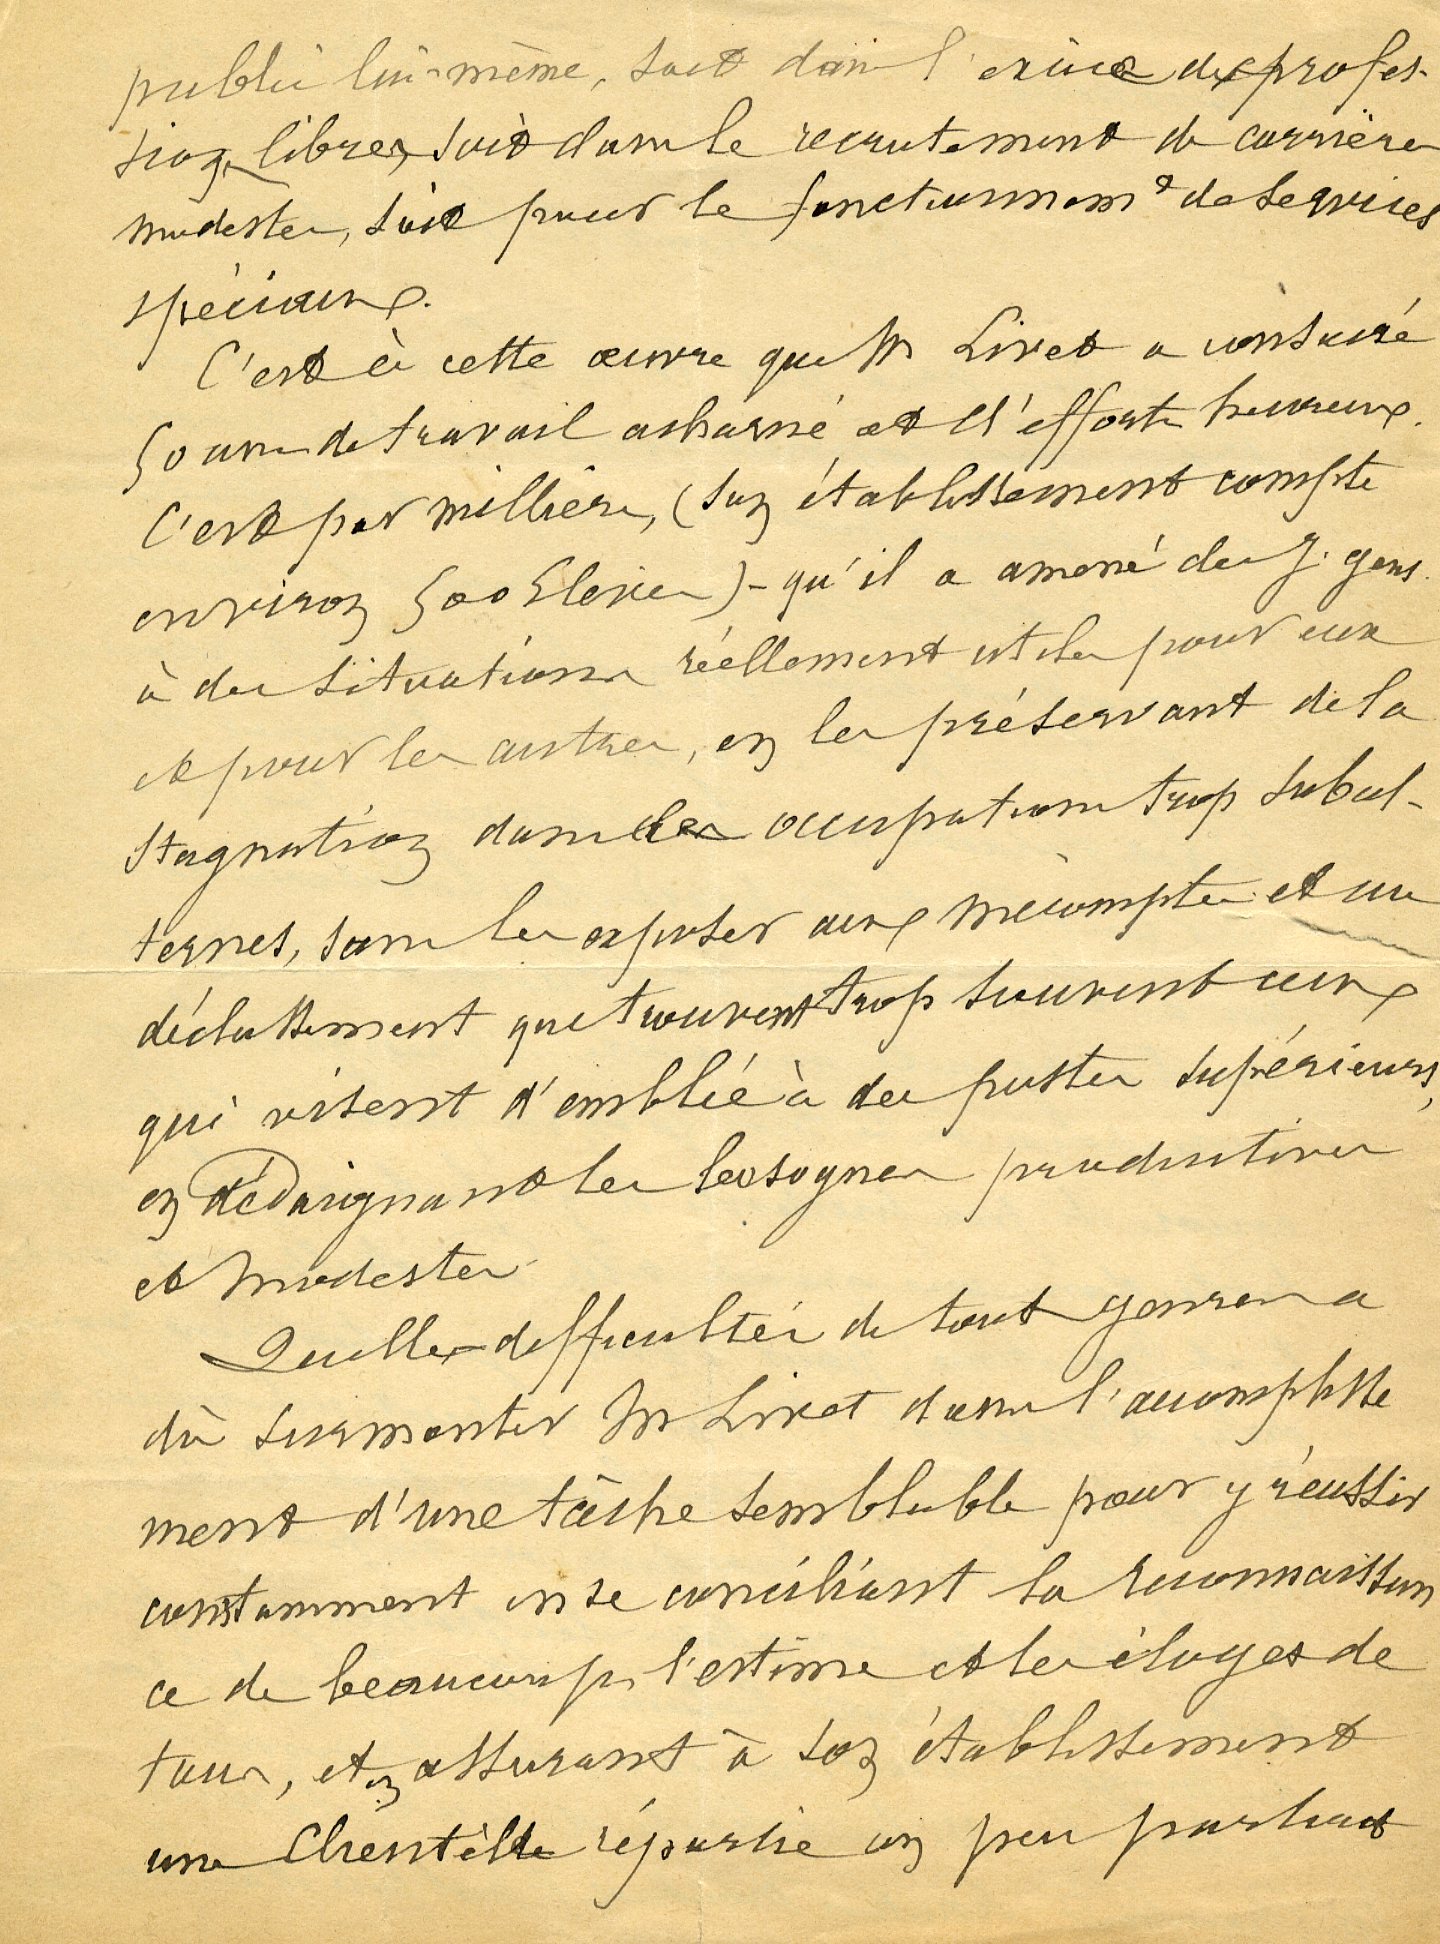 public lui-même, soit dans l'exercice des profes-
sions libres, soit dans le recrutement de carrières
modestes, soit pour le fonctionnemt de services
spéciaux.
C'est à cette œuvre que M Livet a consacré
50 ans de travail acharné et d'efforts heureux.
C'est par milliers, (son établissement compte
environ 500 Elèves) - qu'il a amené des J. gens
à des situations réellement utiles pour eux
et pour les autres, en les préservant de la
stagnation dans des occupations trop subal-
ternes, sans les exposer aux mécomptes et au
déclassement que trouvent trop souvent ceux
qui visent d'emblée à des postes supérieurs,
en dédaignant les besognes productives
et modestes.
Quelles difficultés de tout genre a
dû surmonter M Livet dans l'accomplisse
ment d'une tâche semblable pour y réussir
constamment en se conciliant la reconnaissan
ce de beaucoup, l'estime et les éloges de
tous, et en assurant à son établissement
une Clientèle répartie un peu partout